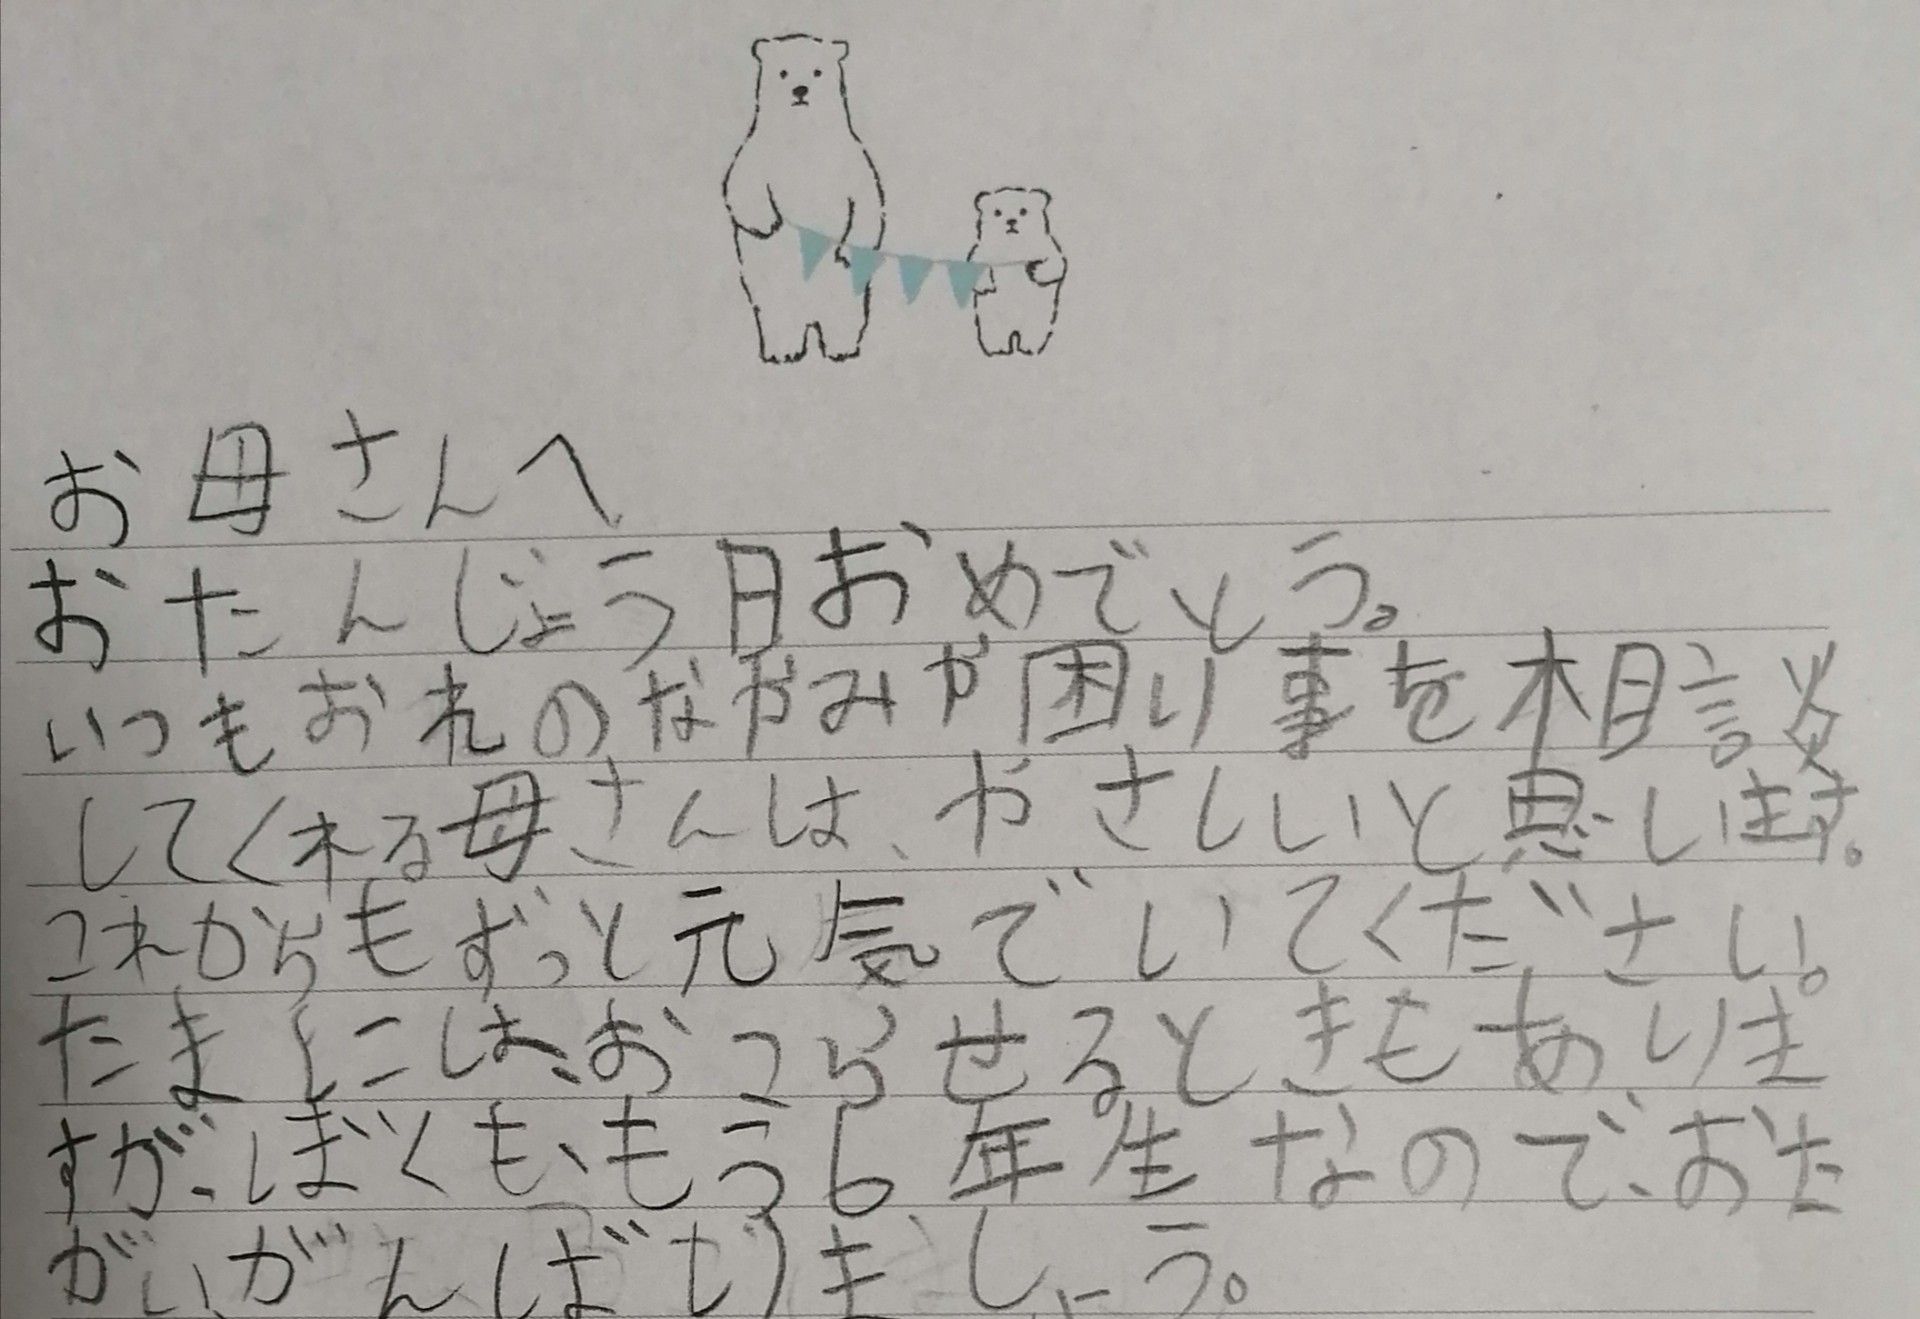 お母さんへ
おたんじょう日おめでとう。
いつもおれのなやみや困り事を相談
してくれる母さんは、やさしいと思います。
これからもずっと元気でいてください。
たまには、おこらせるときもありま
すが、ぼくも、もう6年生なので、おた
がいがんばりましょう。